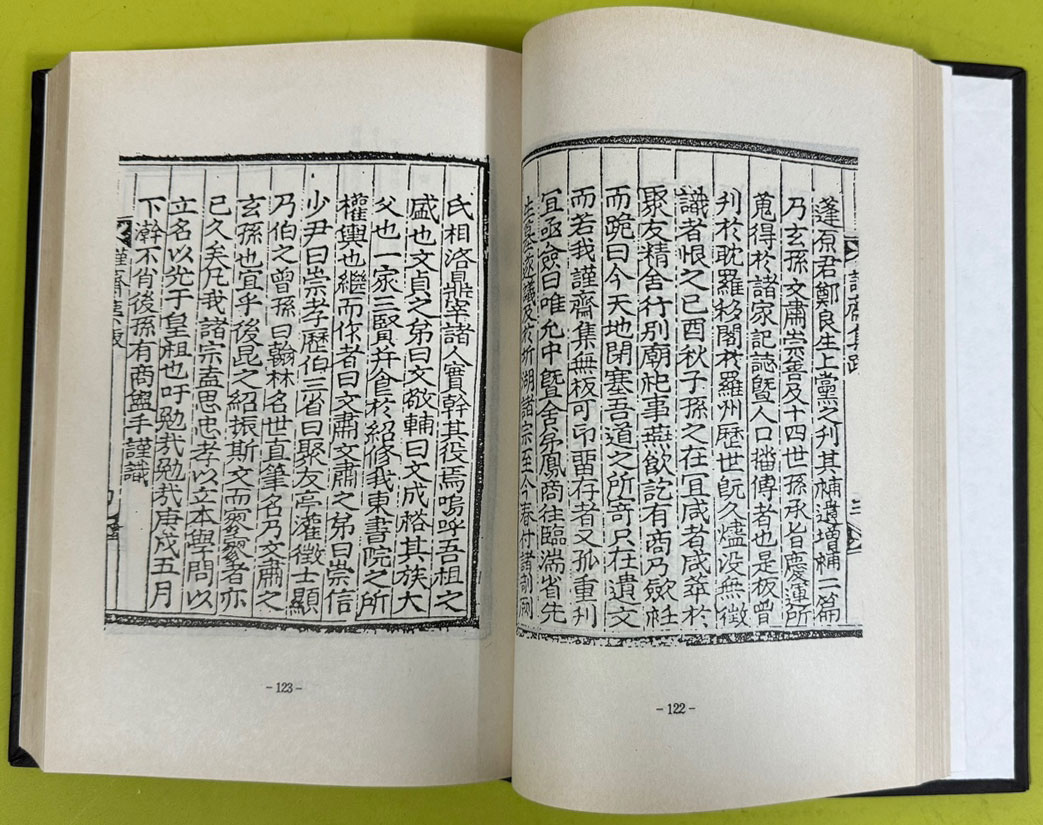 蓬原君鄭良生上黨之刋其補遺增補二篇
乃玄孫文肅崇善及十四世孫承旨慶運所
蒐得於諸家記誌曁人口播傳者也是板曾
刋於耽羅移閣於羅州歷世旣久燼没無徵
識者恨之己酉秋子孫之在宜咸者咸萃於
聚友精舍行别廟祀事蕪飮訖有商乃斂衽
而跪曰今天地閉塞吾道之所寄只在遺文
而若我謹齋集無板可印畱存者又孤重刋
宜亟僉曰唯允中曁舍弟鳳商往臨湍省先
生墓遂議及於圻湖諸宗至今春付諸剞劂
三
- 122 -
氏相洛鼎宰諸人實幹其役焉嗚呼吾祖之
盛也文貞之弟曰文敬輔曰文成格其族大
父也一家三賢幷食於紹修我東書院之所
權輿也繼而作者曰文肅文肅之弟曰崇信
少尹曰崇孝歷伯三省曰聚友亭灌徵士顯
乃伯之曾孫曰翰林名世直筆名乃文肅之
玄孫也宜乎後昆之紹振斯文而寥寥者亦
已久矣凡我諸宗盍思忠孝以立本學問以
立名以光于皇祖也吁勉㢤勉㢤庚戌五月
下澣不肖後孫有商盥手謹識
- 123 -